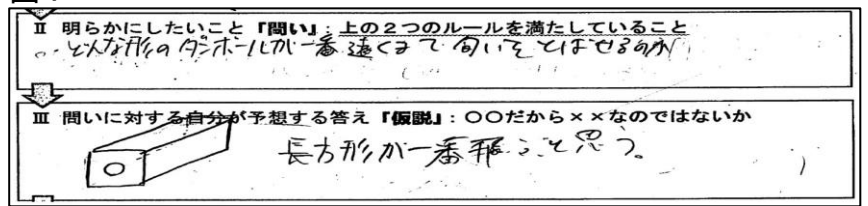 Ⅱ 明らかにしたいこと「問い」：上の２つのルールを満たしていること
どんな形のダンボールが一番遠くまで匂いをとばせるのか
Ⅲ 問いに対する自分が予想する答え「仮説」：○○だから××なのではないか
長方形が一番飛ぶと思う。